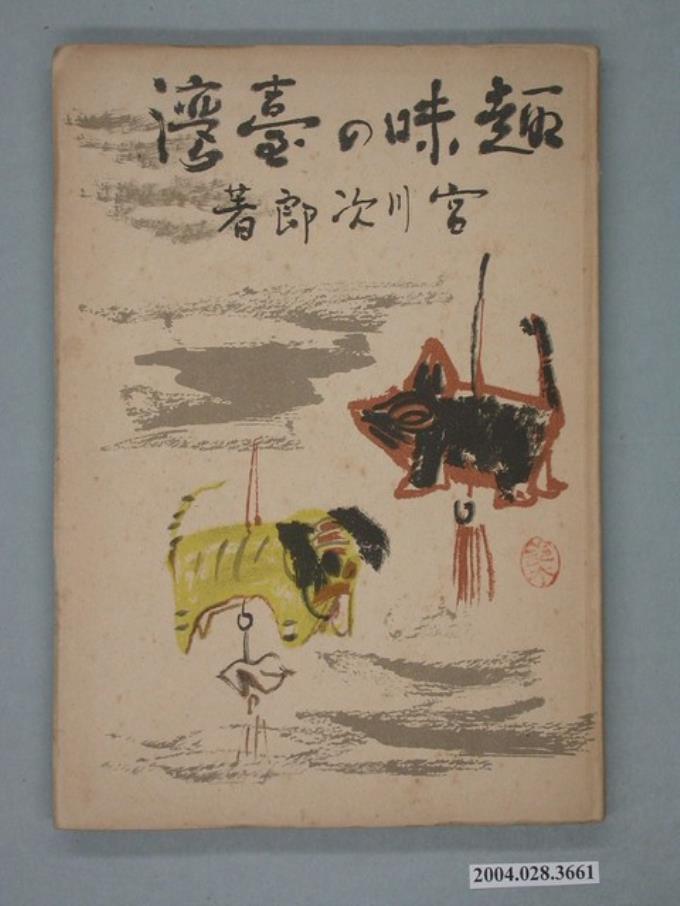 趣味の臺灣
宮川次郎著
2004.028.3661